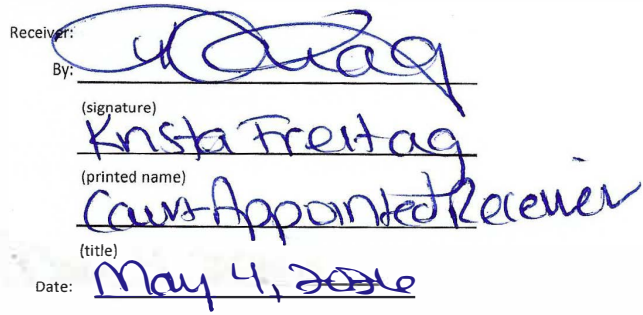 Receiver:
By:
(signature)
Krista Freitag
(printed name)
Court-Appointed Receiver
(title)
Date: May 4, 2026